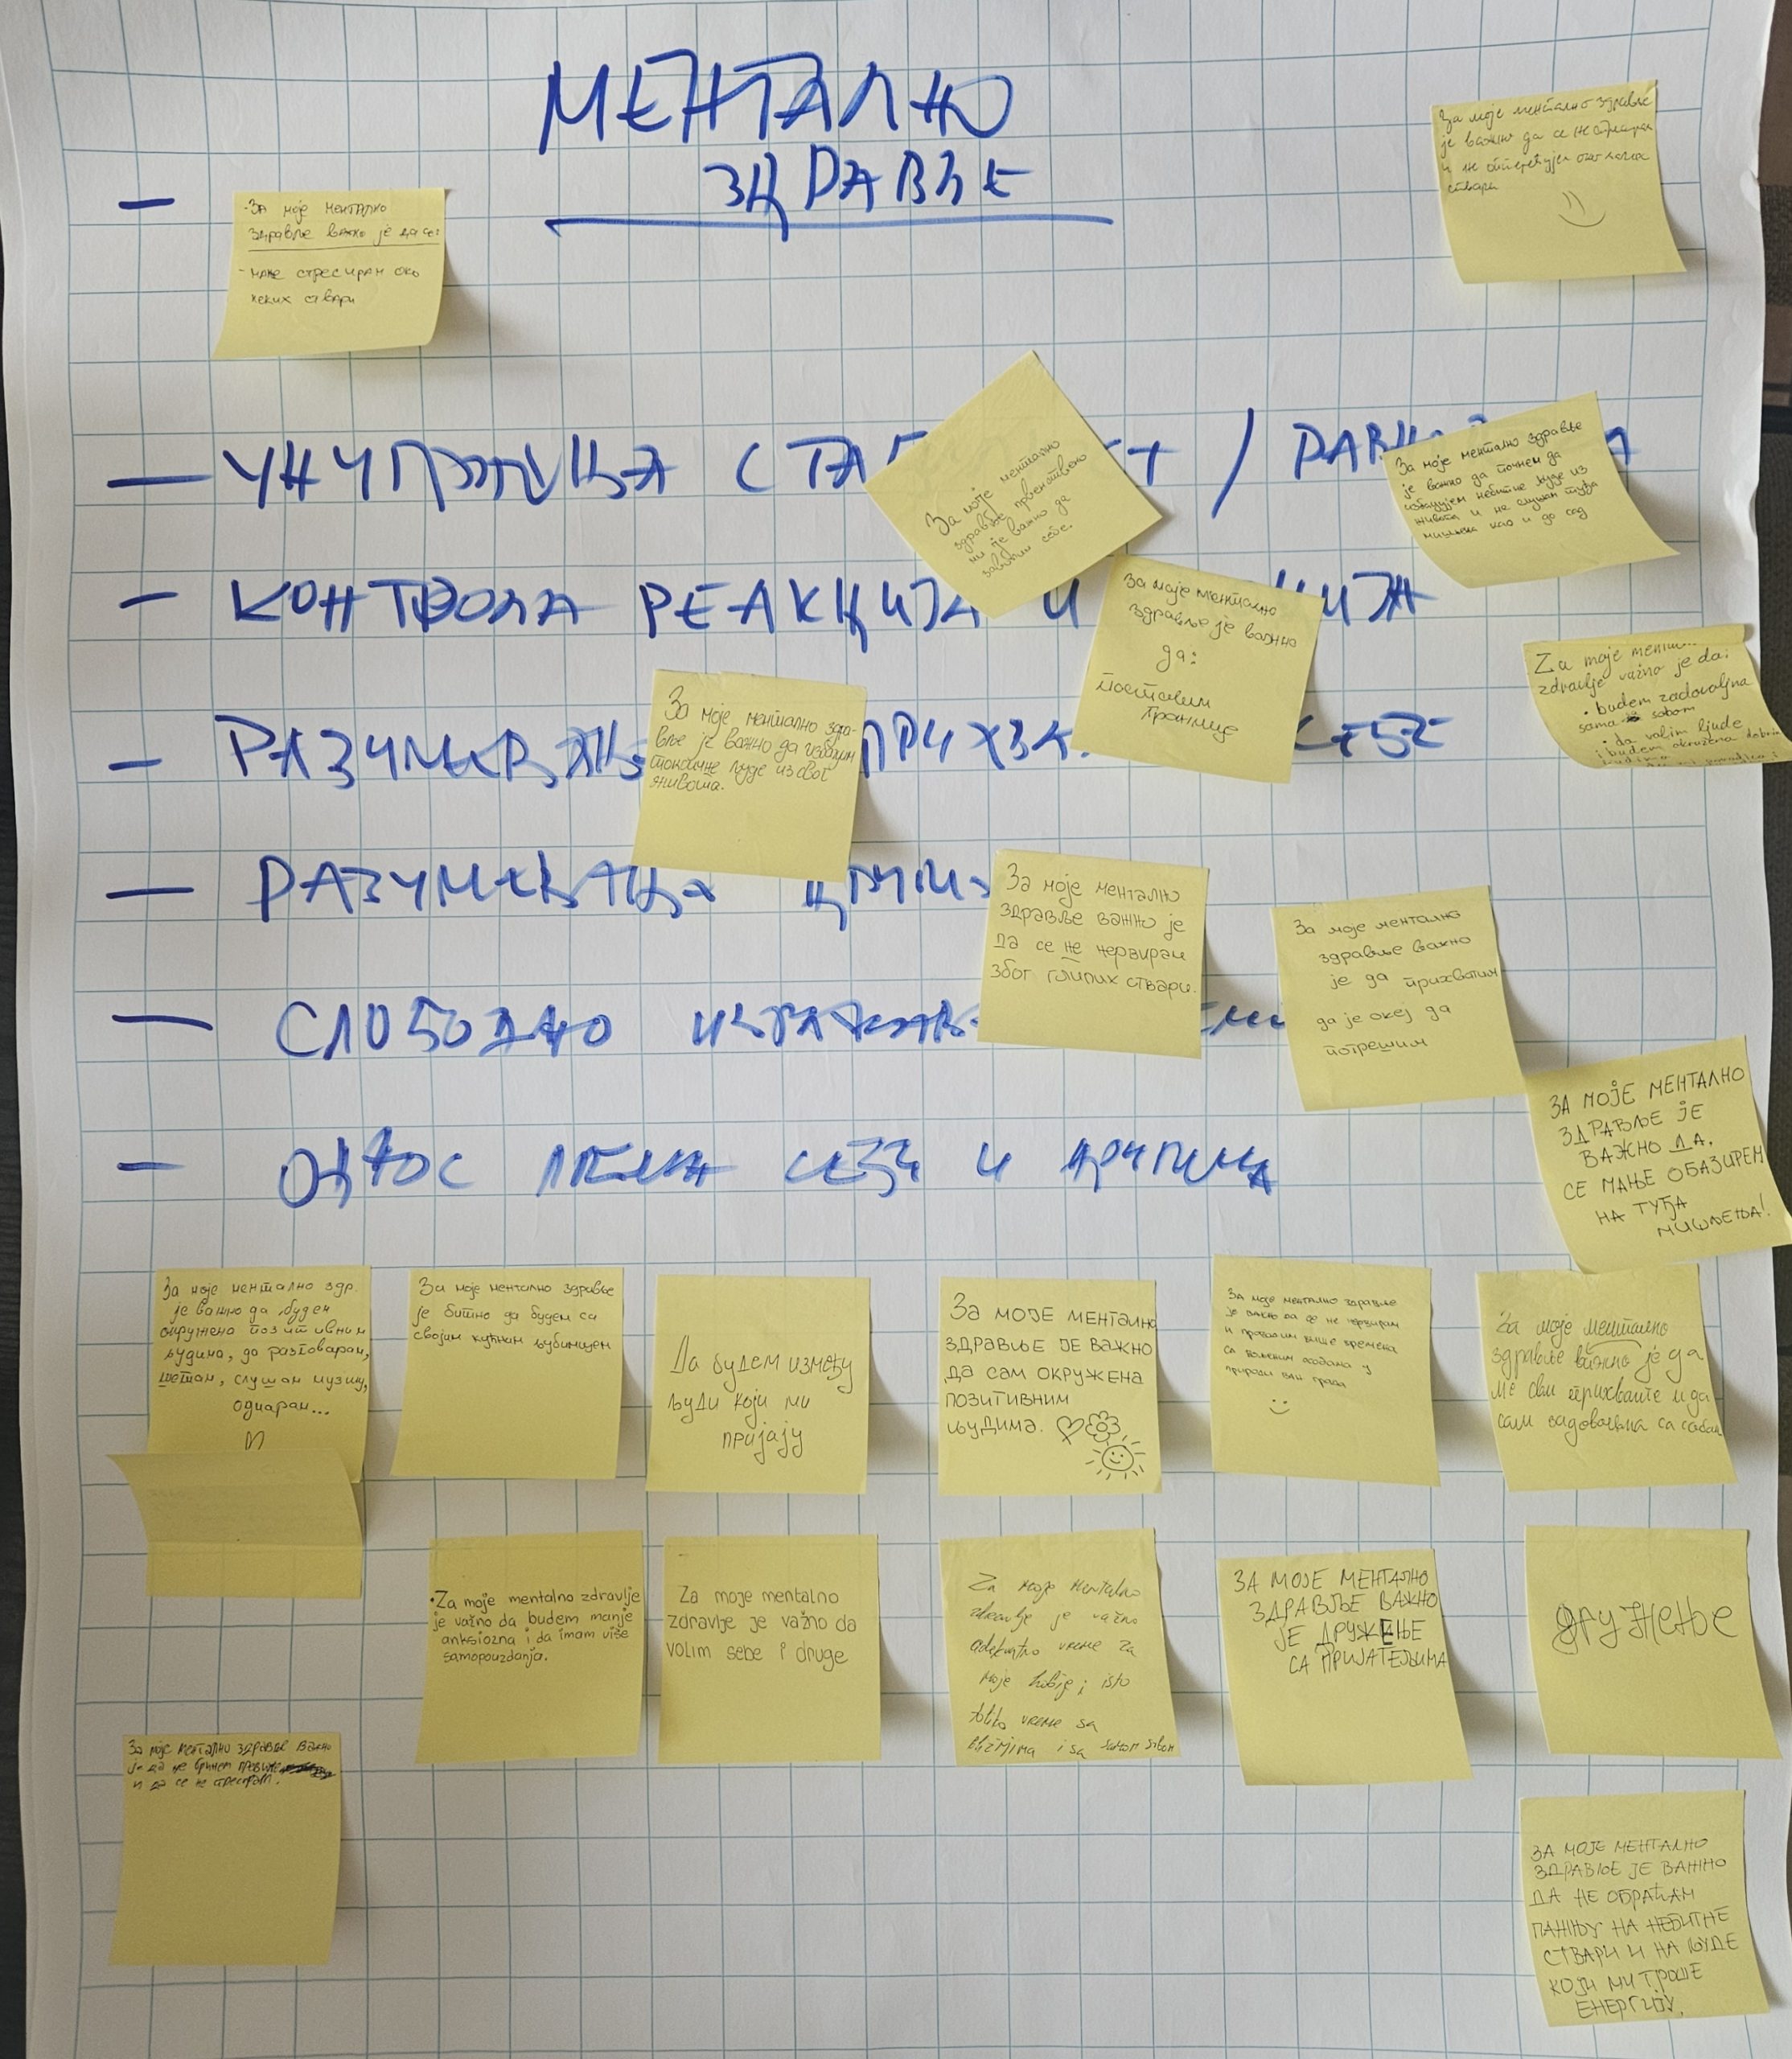 МЕНТАЛНО
ЗДРАВЉЕ
-За моје ментално
здравље важно је да се:
- мање стресирам око
неких ствари
За моје ментално здравље
је важно да се не
и не оптерећујем око
ствари
— УНУТРАШЊА
/
За моје ментално
здравље првенствено
ми је важно да
заволим себе.
За моје ментално здравље
је важно да почнем да
избацујем небитне људе из
живота и не слушам туђа
као и до сад
— КОНТРОЛА РЕАКЦИЈА И
За моје ментално
здравље је важно
да:
поставим
границе
Za moje
zdravlje važno je da:
• budem zadovoljna
sama sobom
• da volim ljude
i budem okružena
— РАЗУМЕВАЊЕ
СЕБЕ
За моје ментално здра-
вље је важно да избацим
токсичне људе из свог
живота.
— РАЗУМЕВАЊЕ
За моје ментално
здравље важно је
да се не нервирам
због глупих ствари.
За моје ментално
здравље важно
је да прихватим
да је океј да
погрешим
— СЛОБОДНО
ЗА МОЈЕ МЕНТАЛНО
ЗДРАВЉЕ ЈЕ
ВАЖНО ДА.
СЕ МАЊЕ ОБАЗИРЕМ
НА ТУЂА
МИШЉЕЊА!
— ОДНОС ПРЕМА СЕБИ И ДРУГИМА
За моје ментално здр.
је важно да будем
окружена позитивним
људима, да разговарам,
шетам, слушам музику,
одмарам...
За моје ментално здравље
је битно да будем са
својим кућним љубимцем
Да будем између
људи који ми
пријају
За моје ментално
здравље је важно
да сам окружена
позитивним
људима.
За моје ментално здравље
је важно да се не нервирам
и проводим више времена
са особама у
природи ван града
За моје ментално
здравље важно је да
ме сви прихвате и да
сам задовољна са собом
•Za moje mentalno zdravlje
je važno da budem manje
anksiozna i da imam više
samopouzdanja.
Za moje mentalno
zdravlje je važno da
volim sebe i druge
Za moje mentalno
zdravlje je važno
adekvatno vreme za
moje hobije i isto
toliko vreme sa
bližnjima i sa samom sobom
ЗА МОЈЕ МЕНТАЛНО
ЗДРАВЉЕ ВАЖНО
ЈЕ ДРУЖЕЊЕ
СА ПРИЈАТЕЉИМА
Дружење
За моје ментално здравље важно
је да не бринем превише
и да се не стресирам.
ЗА МОЈЕ МЕНТАЛНО
ЗДРАВЉЕ ЈЕ ВАЖНО
ДА НЕ ОБРАЋАМ
ПАЖЊУ НА НЕБИТНЕ
СТВАРИ И НА ЉУДЕ
КОЈИ МИ ТРОШЕ
ЕНЕРГИЈУ.